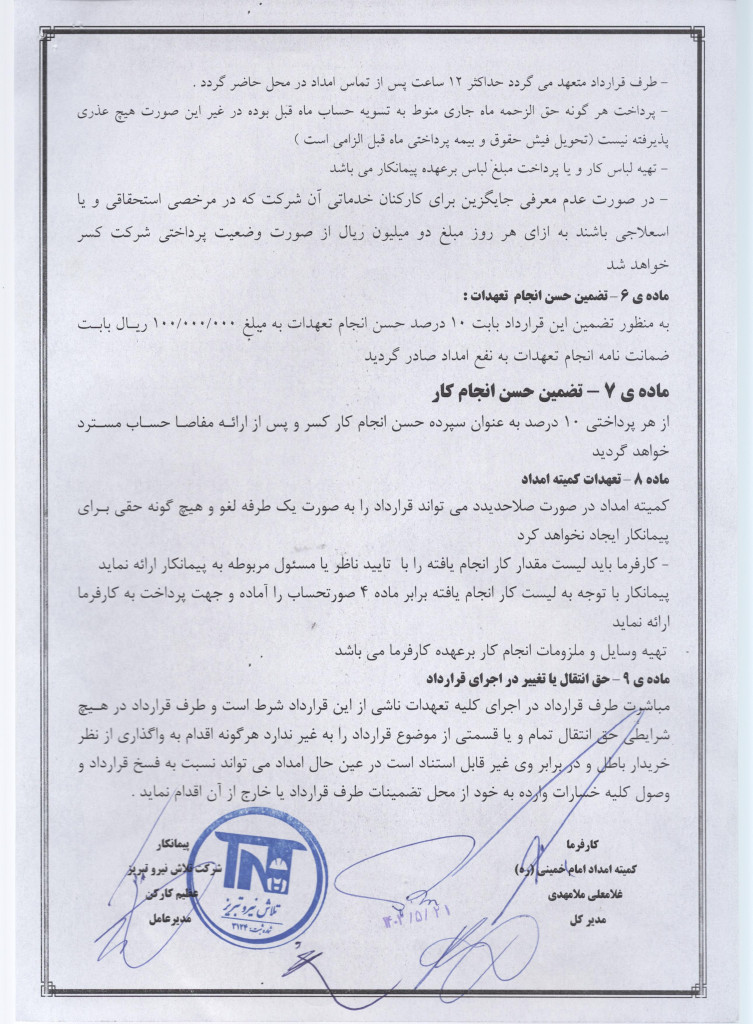 - طرف قرارداد متعهد می گردد حداکثر ۱۲ ساعت پس از تماس امداد در محل حاضر گردد .
- پرداخت هر گونه حق الزحمه ماه جاری منوط به تسویه حساب ماه قبل بوده در غیر این صورت هیچ عذری
پذیرفته نیست (تحویل فیش حقوق و بیمه پرداختی ماه قبل الزامی است )
- تهیه لباس کار و یا پرداخت مبلغ لباس برعهده پیمانکار می باشد
- در صورت عدم معرفی جایگزین برای کارکنان خدماتی آن شرکت که در مرخصی استحقاقی و یا
اسعلاجی باشند به ازای هر روز مبلغ دو میلیون ریال از صورت وضعیت پرداختی شرکت کسر
خواهد شد
ماده ی ۶ - تضمین حسن انجام تعهدات :
به منظور تضمین این قرارداد بابت ۱۰ درصد حسن انجام تعهدات به مبلغ ۱۰۰/۰۰۰/۰۰۰ ریال بابت
ضمانت نامه انجام تعهدات به نفع امداد صادر گردید
ماده ی ۷ - تضمین حسن انجام کار
از هر پرداختی ۱۰ درصد به عنوان سپرده حسن انجام کار کسر و پس از ارائه مفاصا حساب مسترد
خواهد گردید
ماده ۸ - تعهدات کمیته امداد
کمیته امداد در صورت صلاحدیدد می تواند قرارداد را به صورت یک طرفه لغو و هیچ گونه حقی برای
پیمانکار ایجاد نخواهد کرد
- کارفرما باید لیست مقدار کار انجام یافته را با تایید ناظر یا مسئول مربوطه به پیمانکار ارائه نماید
پیمانکار با توجه به لیست کار انجام یافته برابر ماده ۴ صورتحساب را آماده و جهت پرداخت به کارفرما
ارائه نماید
تهیه وسایل و ملزومات انجام کار برعهده کارفرما می باشد
ماده ی ۹ - حق انتقال یا تغییر در اجرای قرارداد
مباشرت طرف قرارداد در اجرای کلیه تعهدات ناشی از این قرارداد شرط است و طرف قرارداد در هیچ
شرایطی حق انتقال تمام و یا قسمتی از موضوع قرارداد را به غیر ندارد هرگونه اقدام به واگذاری از نظر
خریدار باطل و در برابر وی غیر قابل استناد است در عین حال امداد می تواند نسبت به فسخ قرارداد و
وصول کلیه خسارات وارده به خود از محل تضمینات طرف قرارداد یا خارج از آن اقدام نماید .
کارفرما
کمیته امداد امام خمینی (ره)
غلامعلی ملامهدی
مدیر کل
۱۴۰۲/۵/۲۱
پیمانکار
شرکت تلاش نیرو تبریز
عظیم کارکن
مدیرعامل
TN
تلاش نیرو تبریز
شماره ثبت ۳۱۲۴